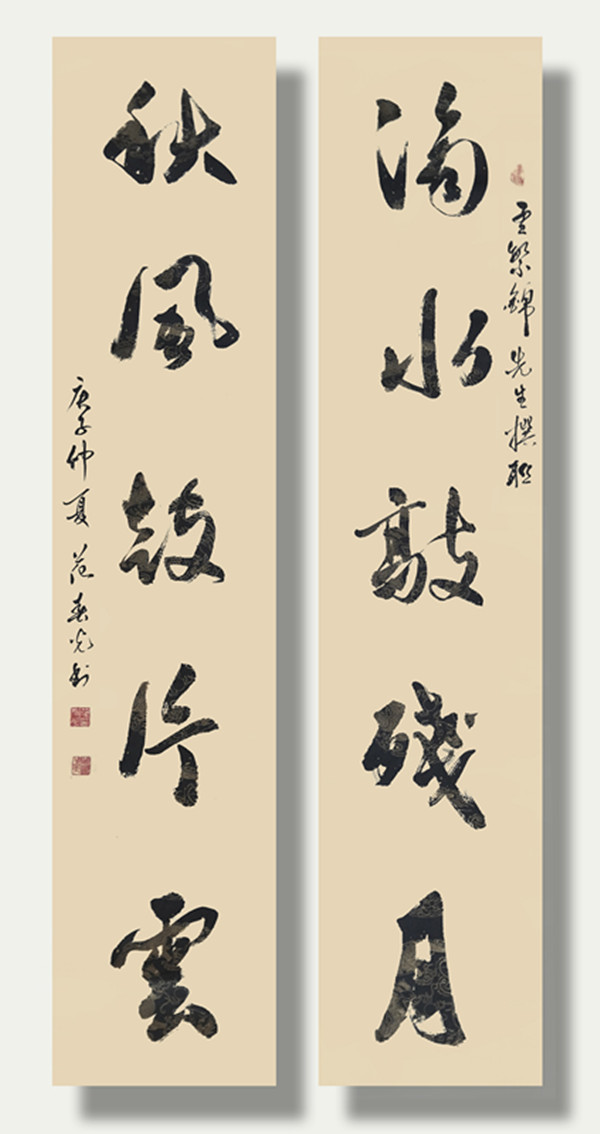 雲繁錦先生撰聯
滴水敲殘月
秋風鼓片雲
庚子仲夏 范春光